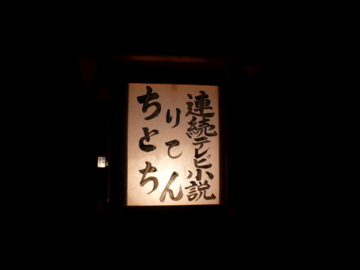 連続テレビ小説
ちりとてちん